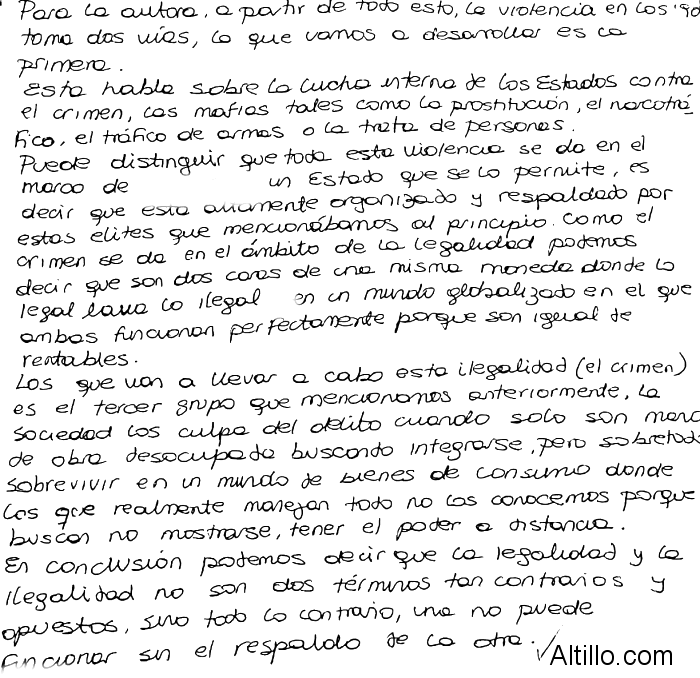 Para la autora, a partir de todo esto, la violencia en los '90
toma dos vías, lo que vamos a desarrollar es la
primera.
Esta habla sobre la lucha interna de los Estados contra
el crimen, las mafias tales como la prostitución, el narcotrá
fico, el tráfico de armas o la trata de personas.
Puede distinguir que toda esta violencia se da en el
marco de un Estado que se lo permite, es
decir que esta altamente organizado y respaldado por
estas elites que mencionábamos al principio. Como el
crimen se da en el ámbito de la legalidad podemos
decir que son dos caras de una misma moneda donde lo
legal lava lo ilegal en un mundo globalizado en el que
ambas funcionan perfectamente porque son igual de
rentables.
Los que van a llevar a cabo esta ilegalidad (el crimen)
es el tercer grupo que mencionamos anteriormente, la
sociedad los culpa del delito cuando solo son mano
de obra desocupada buscando integrarse, pero sobretodo
sobrevivir en un mundo de bienes de consumo donde
los que realmente manejan todo no los conocemos porque
buscan no mostrarse, tener el poder a distancia.
En conclusión podemos decir que la legalidad y la
ilegalidad no son dos términos tan contrarios y
opuestos, sino todo lo contrario, una no puede
funcionar sin el respaldo de la otra.
Altillo.com